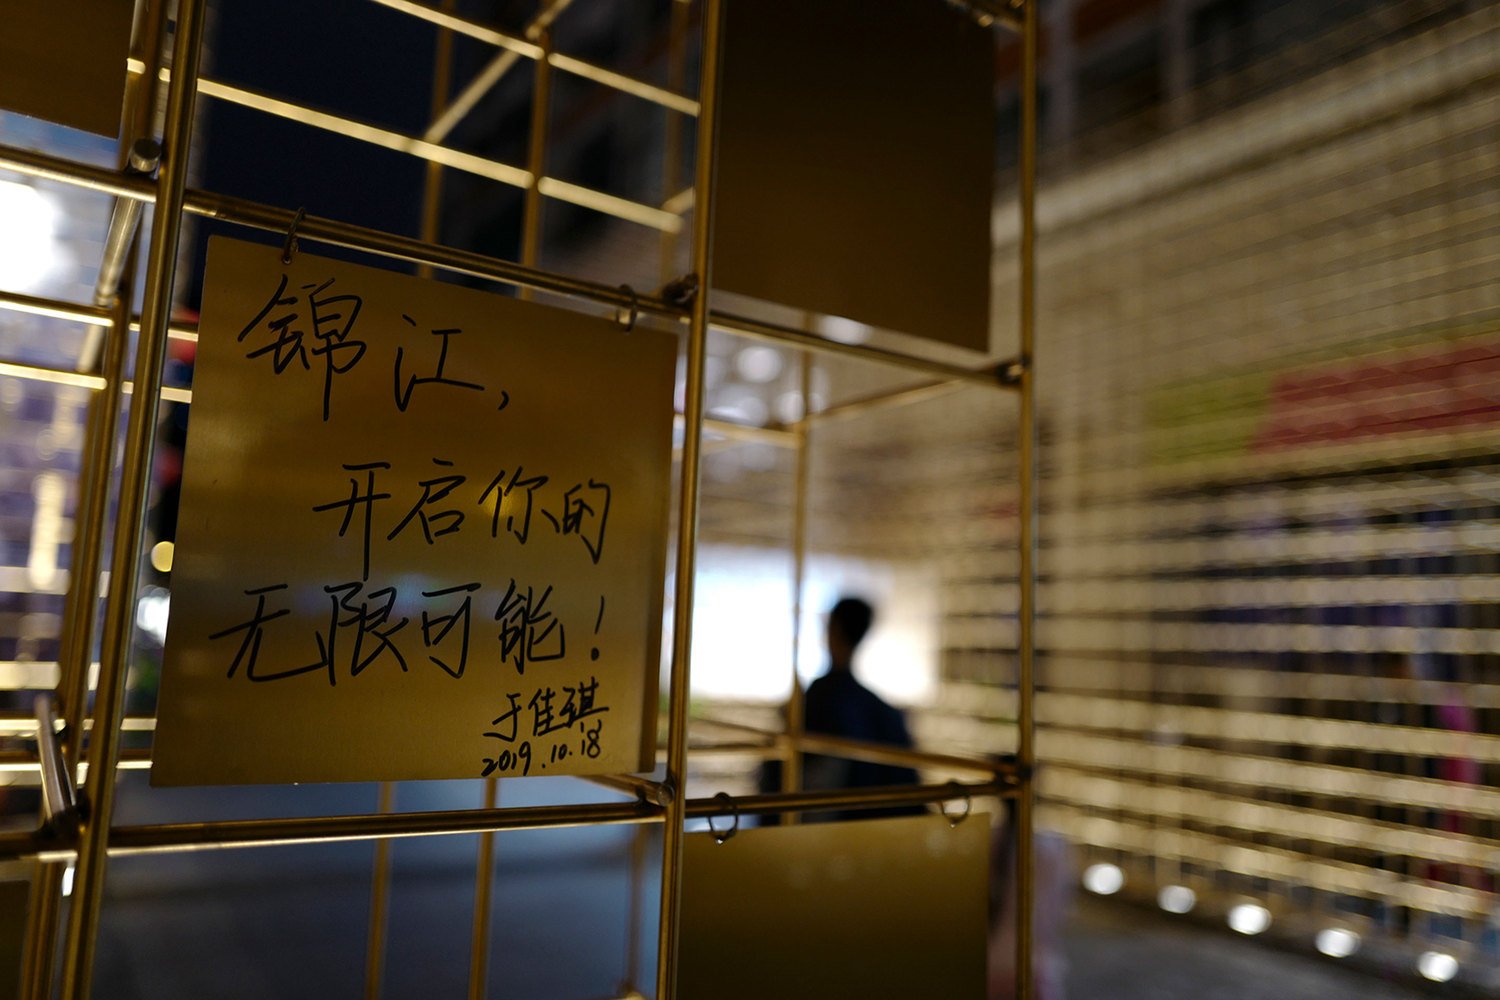 锦江,
开启你的
无限可能!
于佳琪
2019.10.18